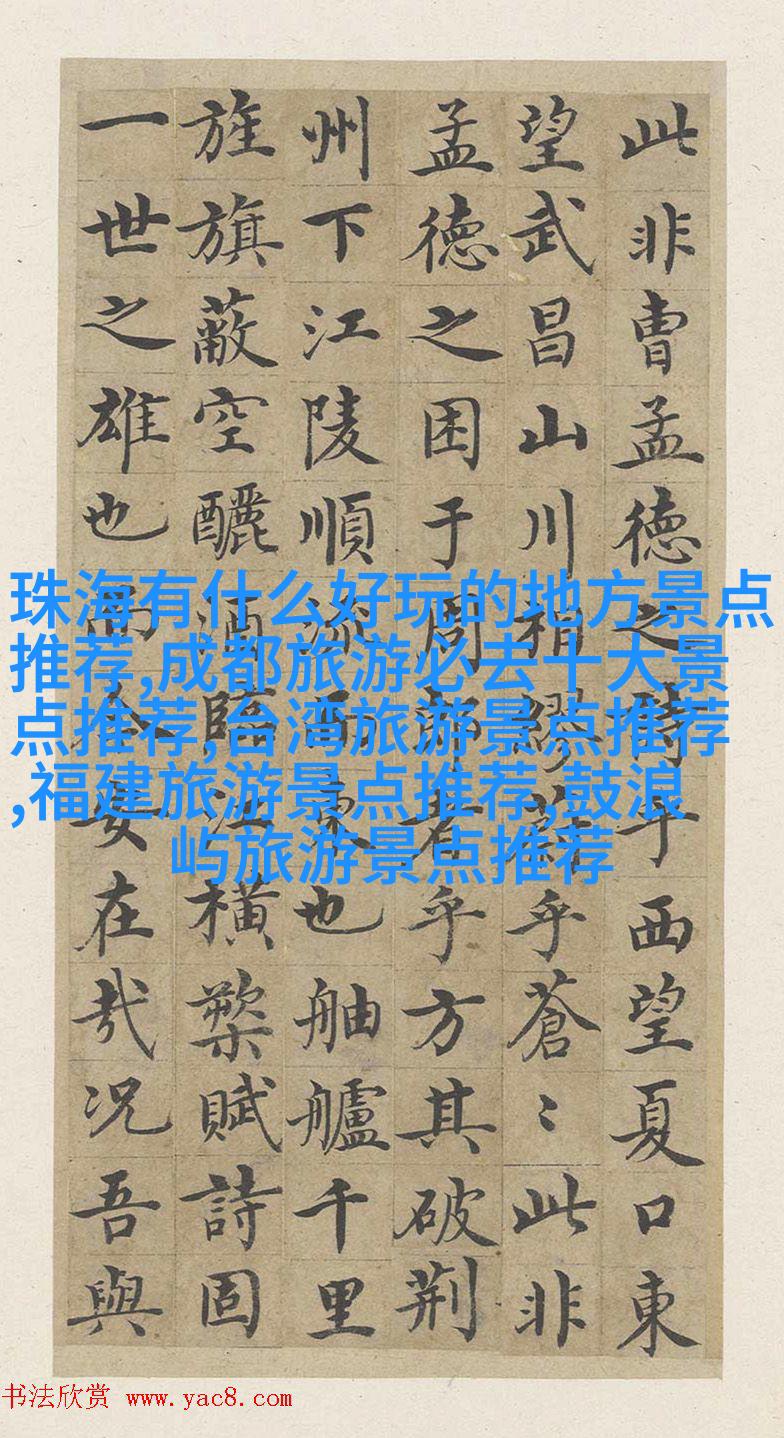 此非曹孟德之時乎西望夏口東
望武昌山川相繆乎蒼〻此非
孟德之困于周郎者乎方其破荆
州下江陵順流而東也舳艫千里
旌旗蔽空釃酒臨江横槊賦詩固
一世之雄也而今安在哉况吾與
珠海有什么好玩的地方景点
推荐,成都旅游必去十大景
点推荐,台湾旅游景点推荐
,福建旅游景点推荐,鼓浪
屿旅游景点推荐
书法欣赏 www.yac8.com